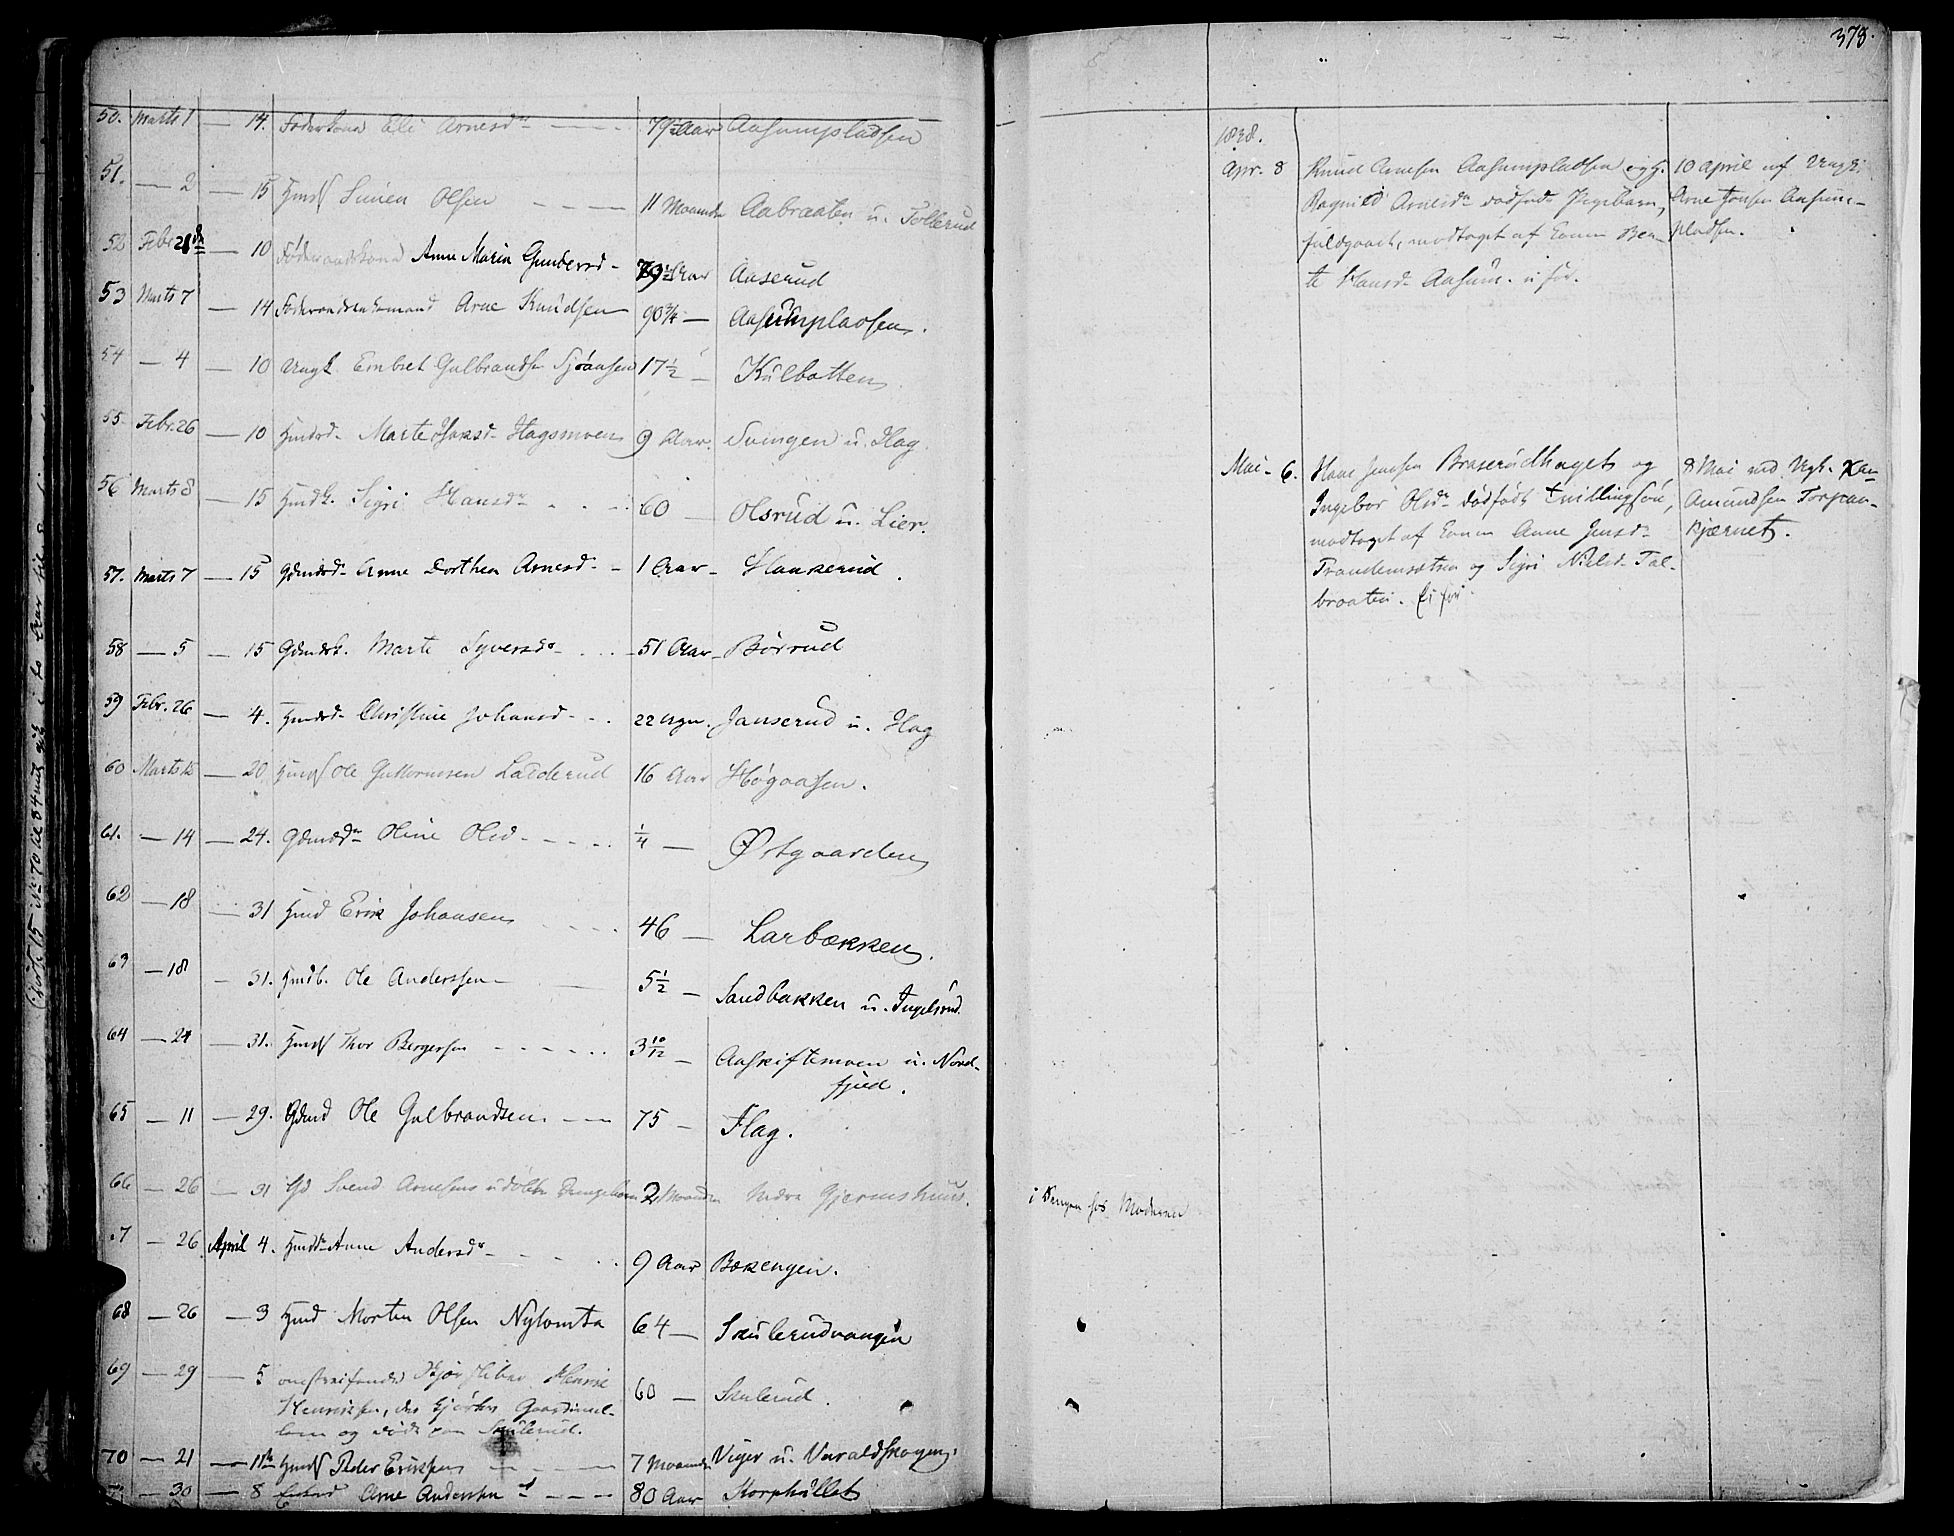 378.
50. Marts 1 — 14. Føderkone Eli Arnesdr — — 79½ Aar Aasumpladsen
51. — 2 — 15 Hmds Simen Olsen — — 11 Maaneder Aabraaten u. Tollerud
52 Febr. 21de — 10 Føderaadskone Anne Maria Gundersd — Aar Aaserud
53 Marts 7 — 14 Føderaadsenkemand Arne Knudsen — 90 3/4 — Aasumpladsen.
54 — 4 — 10 Ungk. Embret Gulbrandsen 17½ — Kulbotten
55 Febr. 26 — 10 Hmdsd. Marte Hagsmoen 9 Aar. Svingen u. Hag.
56 Marts 8 — 15 Hmdk. Sigri Hansdr - - 60 — Olsrud u. Lier.
57. Marts 7 — 15 Gdmdsd. Anne Dorthea Arnesd. — 1 Aar — Haukerud.
58 — 5 — 15 Gdmdsk. Marte Syversdr — 51 Aar — Børrud
59 Febr. 26 — 4. Hmdsd. Christine Johansd. - - 22 Ugr. Janserud u. Hag
60 Marts 15 — 20. Hmds Ole Guttormsen Ladderud 16 Aar Høgaasen.
61. — 14 — 24. Gdmdsdr Oline Olsd. - - - ¼ — Østgaarden
62 — 18 — 31 Hmd Erik Johansen - - - 46 — Larbækken.
63 — 18 — 31. Ole Anderssen — 5½ — Sandbakken u. Ingelsrud
64 — 24 — 31. Hmds Thor Bergersen - - - 3 10/12 — Aaskiftemoen u. Nord-
fjeld.
65 — 11 — 29. Gdmd Ole Gulbrandsen — 75 — Hag.
66 — 26 — 31 Gd Svend Arnesens udøbte Drengebarn 2 Maaneder Nedre Gjermshuus.
i Sengen hos Moderen
7 — 26 April 4. Hmdsdr Anne Andersdr — - - 9 Aar Bækengen.
68 — 26 — 3 Hmd Morten Olsen Nylomta 64 — Skulerudvangen
69 — 29 — 5 omstreifende Henrik
Henriksen, der
og døde paa Skulerud. 60 — Skulerud.
70 — 21 — 11te Hmds Peder Eriksen — — 7 Maaneder Viger u. Varaldskogen.
— 30 — 8 Arne Andersen — — 80 Aar Korphullet
1838.
Apr. 8 Knud Arnesen Aasumpladsen og H.
Ragnild Arnesdr dødfødt Pigebarn,
fuldgaaet, modtaget af Konen Bea-
te Hansd. Aasum.
10 April af Ungk.
Arne Jonsen Aasum-
pladsen.
Mai 6. Hans Jensen Braserudhaget og
Ingebor Olsdr dødfødt tvillingsøn,
modtaget af Konen Anne Jensd.
og Sigri Nielsd. Tal-
braaten.
8 Mai ved Ugk.
Amundsen Torpan-
kjærnet.